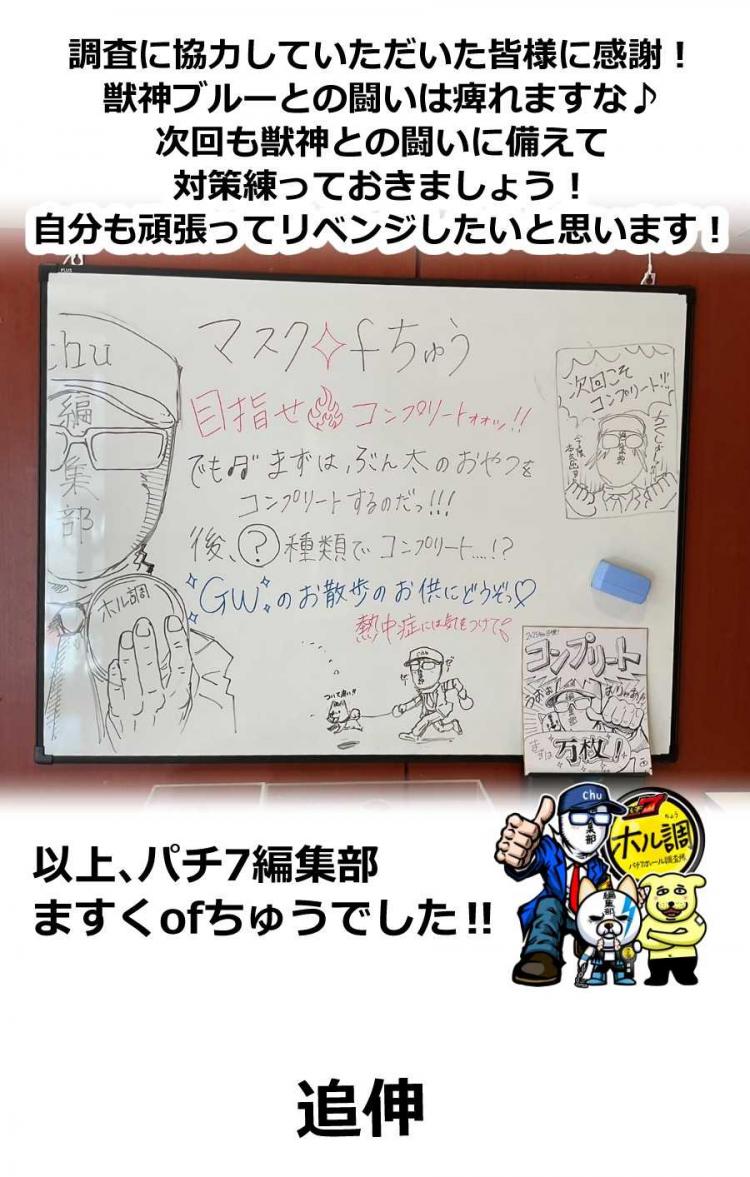 調査に協力していただいた皆様に感謝！
獣神ブルーとの闘いは痺れますな♪
次回も獣神との闘いに備えて
対策練っておきましょう！
自分も頑張ってリベンジしたいと思います！
PLUS
chu
編集部
ホル調
マスク✧ofちゅう
目指せ コンプリートォォッ!!
でもまずは、ぶん太のおやつを
コンプリートするのだっ!!!
後、?種類でコンプリート....!?
"GW"のお散歩のお供にどうぞっ♡
熱中症には気をつけて
次回こそ
コンプリート!!!
コンプリート
うおぉ
おりゃあ
編集部
まずは
万枚!
Chu
編集部
ちょう
ホル調
パチ7ホール調査隊
編集部
以上、パチ7編集部
ますくofちゅうでした!!
追伸